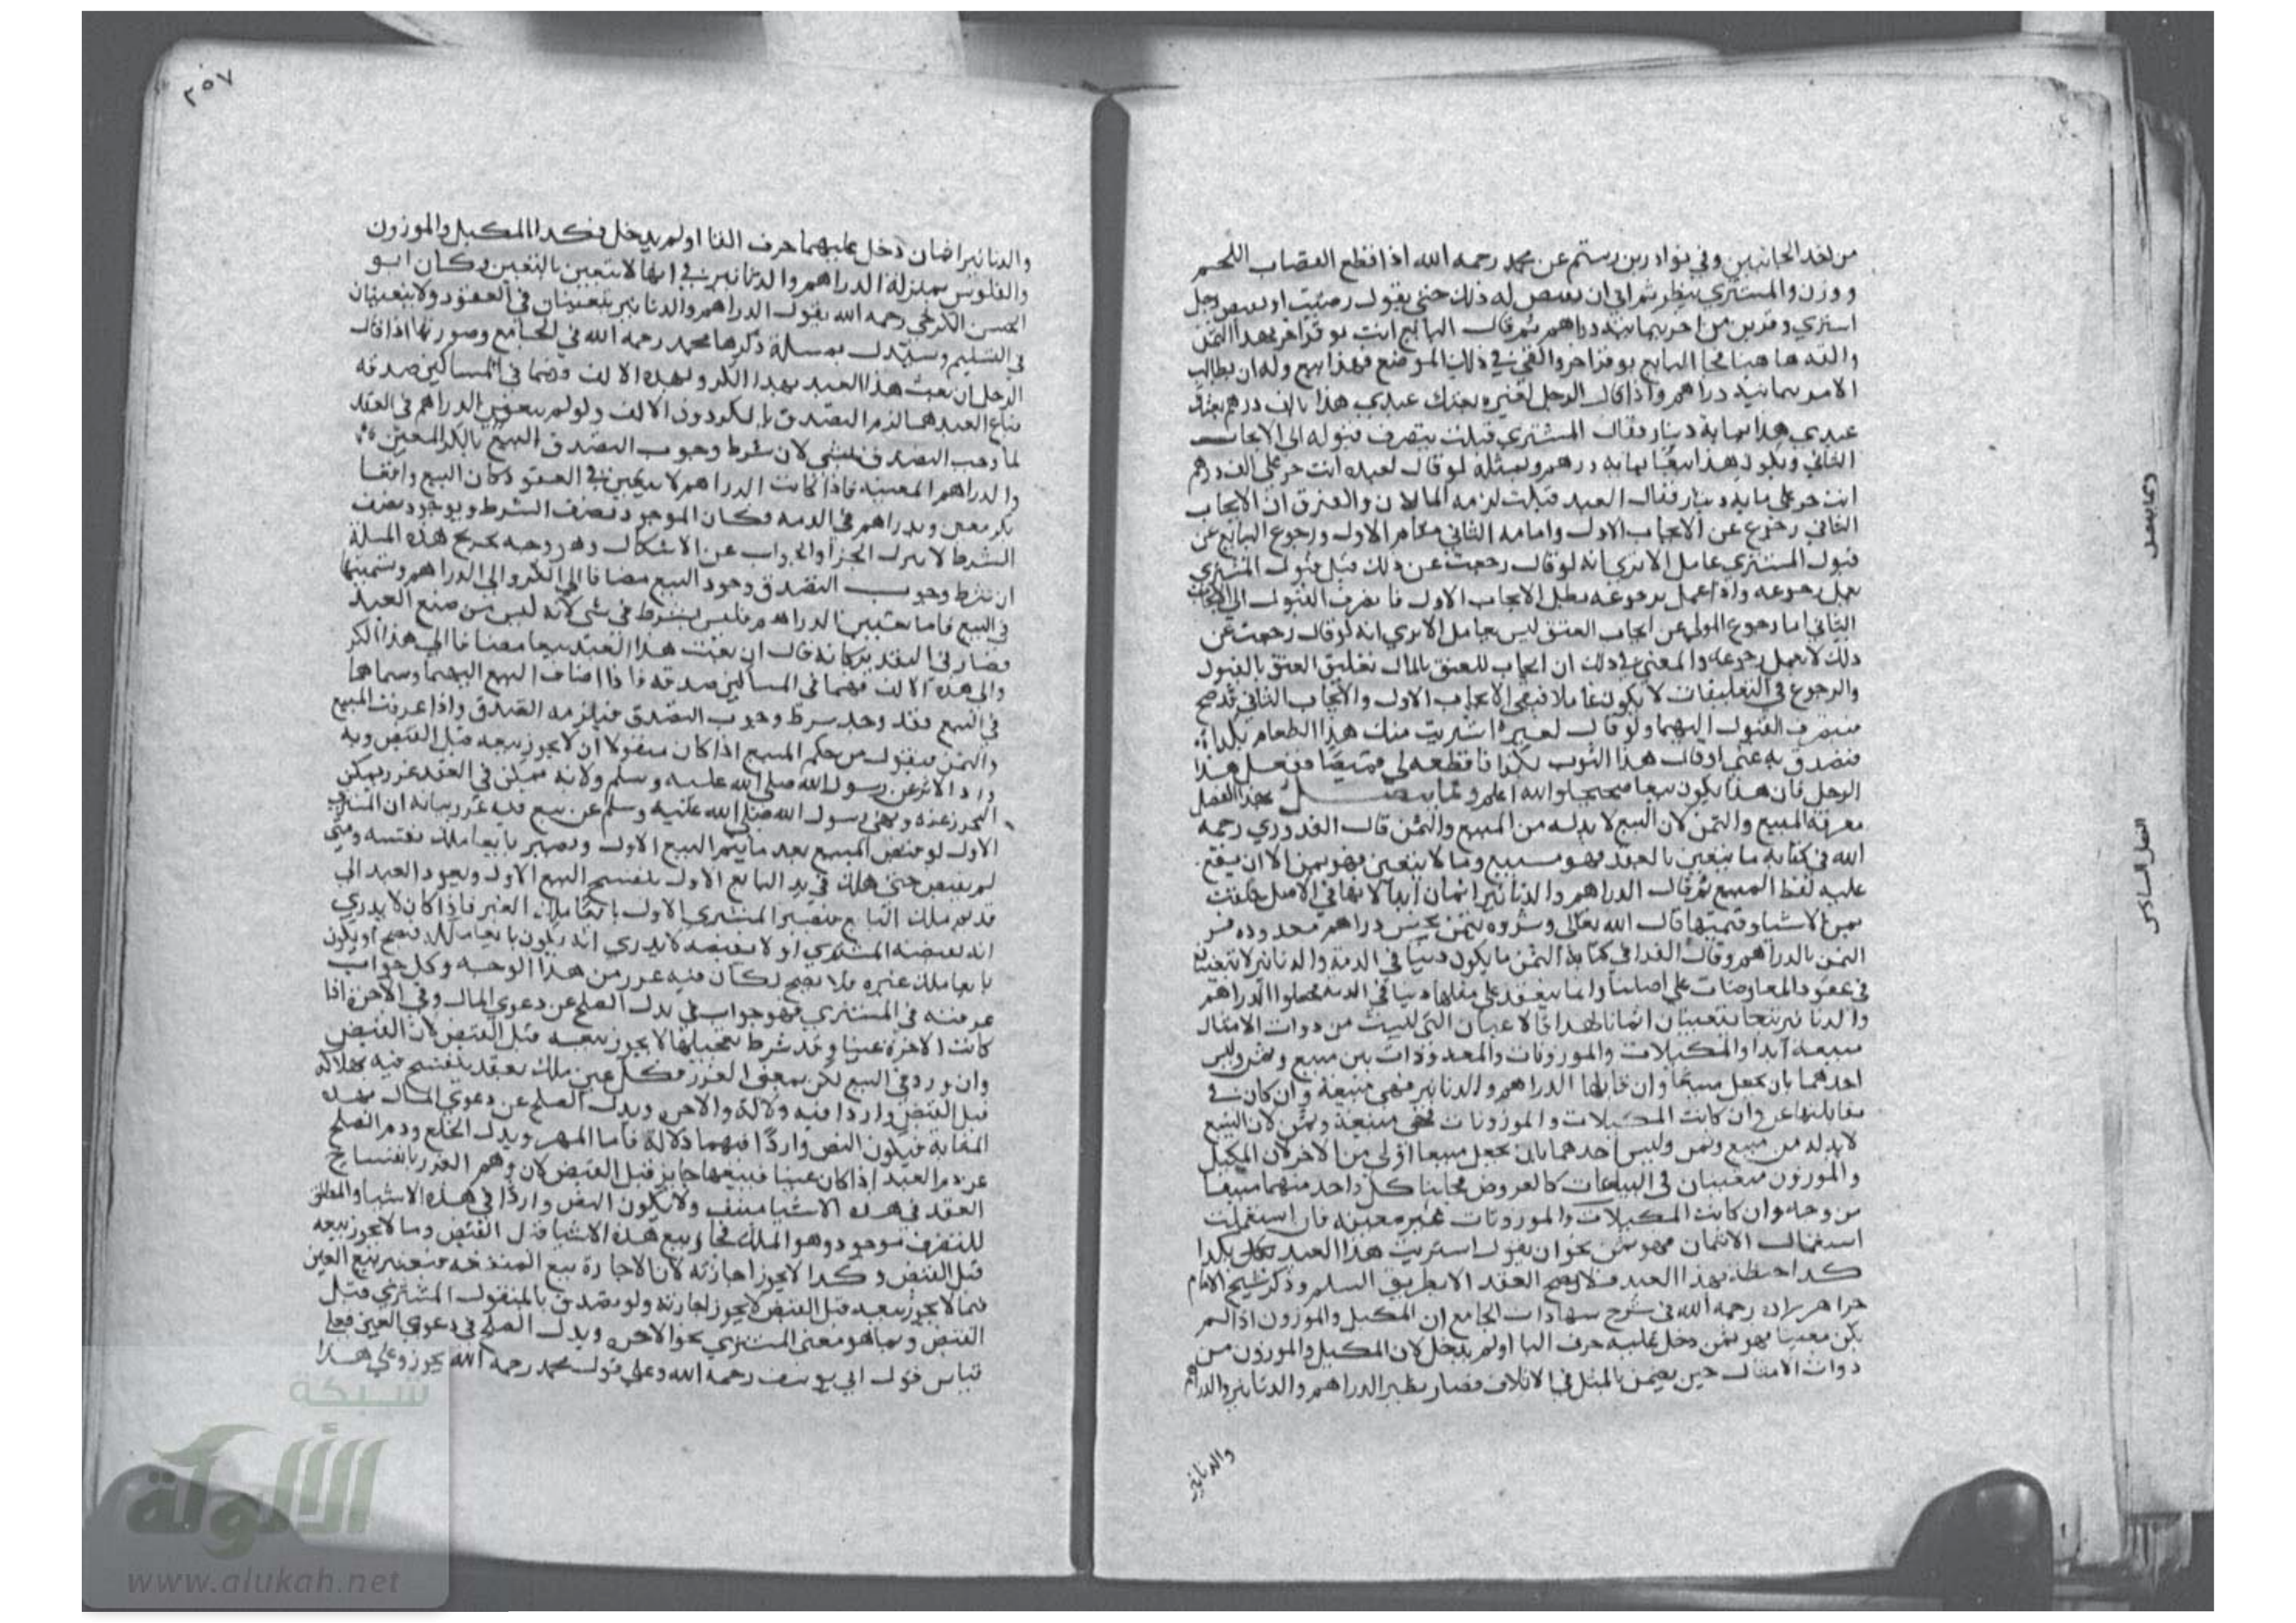 من احد الجانبين وفي نوادر بن رستم عن محمد رحمه الله اذا قطع القصاب اللحم
ووزن والمشتري ينظر ثم ابى ان يقبض له ذلك حتى يقول رضيت او يقبض رجل
اشترى وقرين من اخر بثمانية دراهم ثم قال البايع ايت بوقر اخر بهذا الثمن
والقه هاهنا فجا البايع بوقر اخر والقى في ذلك الموضع فهذا بيع وله ان يطالب
الامر بثمانية دراهم واذا قال الرجل لغيره بعتك عبدي هذا بالف درهم بعتك
عبدي هذا بماية دينار فقال المشتري قبلت ينصرف قبوله الى الايجاب
الثاني ويكون هذا بيعا بماية وبمثله لو قال لعبده انت حر على الف درهم
انت حر على ماية دينار فقال العبد قبلت لزمه المالان والفرق ان الايجاب
الثاني رجوع عن الايجاب الاول واقامة الثاني مقام الاول ورجوع البايع عن
قبول المشتري عامل الا يرى انه لو قال رجعت عن ذلك قبل قبول المشتري
يعمل رجوعه واذا عمل رجوعه بطل الايجاب الاول فانصرف القبول الى الايجاب
الثاني اما رجوع المولى عن ايجاب العتق ليس بعامل الا يرى انه لو قال رجعت عن
ذلك لا يعمل رجوعه والمعنى في ذلك ان ايجاب العتق بالمال تعليق العتق بالقبول
والرجوع في التعليقات لا يكون عاملا فبقي الايجاب الاول والايجاب الثاني قد صح
فينصرف القبول اليهما ولو قال لغيره اشتريت منك هذا الطعام بكذا
فتصدق به عني او قال هذا الثوب بكذا فاقطعه لي قميصا ففعل هذا
الرجل فان هذا يكون بيعا صحيحا والله اعلم ومما يتصل بهذا الفصل
معرفة المبيع والثمن لان البيع لا بد له من المبيع والثمن قال القدوري رحمه
الله في كتابه ما يتعين بالعقد فهو مبيع وما لا يتعين فهو ثمن الا ان يقع
عليه لفظ المبيع ثم قال الدراهم والدنانير اثمان ابدا لانها في الاصل خلقت
ثمن الاشيا وقيمتها قال الله تعالى وشروه بثمن بخس دراهم معدودة فسر
الثمن بالدراهم وقال الفرا في كتابه الثمن ما يكون دينا في الذمة والدنانير لا تتعينان
في عقود المعاوضات على اصلنا وانما ينعقد على مثلها دينا في الذمة فجعلوا الدراهم
والدنانير اثمانا لهذا فالاعيان التي ليست من ذوات الامثال
مبيعة ابدا والمكيلات والموزونات والمعدودات بين مبيع وثمن وليس
احدهما بان يجعل مبيعا وان قابلها الدراهم والدنانير فهي مبيعة وان كان في
مقابلتها عين وان كانت المكيلات والموزونات فهي مبيعة وثمن لان البيع
لا بد له من مبيع وثمن وليس احدهما بان يجعل مبيعا اولى من الاخر لان المكيل
والموزون متعينان في البياعات كالعروض فجعلنا كل واحد منهما مبيعا
من وجه وان كانت المكيلات والموزونات غير معينة فان استعملت
استعمال الاثمان فهو ثمن نحو ان يقول اشتريت هذا العبد بكذا
كذا حنطة بهذا العبد فلا يصح العقد الا بطريق السلم وذكر شيخ الامام
خواهر زاده رحمه الله في شرح شهادات الجامع ان المكيل والموزون اذا لم
يكن معينا فهو ثمن دخل عليه حرف البا او لم يدخل لان المكيل والموزون من
ذوات الامثال حين يضمن بالمثل في الاتلاف فصار نظير الدراهم والدنانير والدراهم
والدنانير
ومما يتصل
الفصل السادس
٢٥٧
والدنانير اثمان دخل عليهما حرف البا او لم يدخل فكذا المكيل والموزون
والفلوس بمنزلة الدراهم والدنانير في انها لا تتعين بالتعيين وكان ابو
الحسن الكرخي رحمه الله يقول الدراهم والدنانير يتعينان في العقود ولا يتعينان
في التسليم وستدل بمسلة ذكرها محمد رحمه الله في الجامع وصورتها اذا قال
الرجل ان بعت هذا العبد بهذا الكر وبهذه الالف فهما في المساكين صدقة
فباع العبد بهما لزمه التصدق بالكر دون الالف ولو لم يتعين الدراهم في العقد
لما وجب التصدق بشي لان شرط وجوب التصدق البيع بالكر المعين
والدراهم المعينة فاذا كانت الدراهم لا تتعين في العقود كان البيع واقعا
بكر معين وبدراهم في الذمة فكان الموجود نصف الشرط وبوجود نصف
الشرط لا ينزل الجزا والجواب عن الاشكال وهو وجه تخريج هذه المسلة
ان شرط وجوب التصدق وجود البيع مضافا الى الكر والى الدراهم وتسميتها
في البيع فاما تعيين الدراهم فليس بشرط في شي لانه ليس من صنع العبد
فصار في التقدير كانه قال ان بعت هذا العبد بيعا مضافا الى هذا الكر
والى هذه الالف فهما في المساكين صدقة فاذا اضاف البيع اليهما وسماهما
في البيع فقد وجد شرط وجوب التصدق فيلزمه التصدق واذا عرفت المبيع
والثمن فنقول من حكم المبيع اذا كان منقولا ان لا يجوز بيعه قبل القبض وبه
ورد الاثر عن رسول الله صلى الله عليه وسلم ولانه تمكن في العقد غرر يمكن
التحرز عنه ونهى رسول الله صلى الله عليه وسلم عن بيع فيه غرر بيانه ان المشتري
الاول لو قبض المبيع بعد ما يتم البيع الاول ويصير بايعا ملك نفسه ومتى
لم يقبض حتى هلك في يد البايع الاول ينفسخ البيع الاول ويعود العبد الى
قديم ملك البايع فيصير المشتري الاول بايعا ملك الغير فاذا كان لا يدري
انه يقبضه المشتري او لا يقبضه لا يدري انه يكون بايعا ملكه فيصح او يكون
بايعا ملك غيره فلا يصح لكان فيه غرر من هذا الوجه وكل جواب
عرفته في المشتري فهو جواب في بدل الصلح عن دعوى المال وفي الاجرة اذا
كانت الاجرة عينا وقد شرط تعجيلها لا يجوز بيعه قبل القبض لان القبض
وان ورد في البيع لكن بمعنى الغرر فكل عين ملك بعقد ينفسخ فيه بهلاكه
قبل القبض واردا فيه دلالة والاجر وبدل الصلح عن دعوى المال بهذه
المثابة فيكون النص واردا فيهما دلالة فاما المهر وبدل الخلع ودم الصلح
عن دم العبد اذا كان عينا فبيعها جايز قبل القبض لان وهم الغرر بانفساخ
العقد في هذه الاشيا منتف ولا يكون النص واردا في هذه الاشيا والمطلق
للتصرف موجود وهو الملك فجاز بيع هذه الاشيا قبل القبض وما لا يجوز بيعه
قبل القبض وكذا لا يجوز اجارته لان الاجارة بيع المنفعة فتعتبر ببيع العين
فما لا يجوز بيعه قبل القبض لا يجوز اجارته ولو تصدق بالمنقول المشتري قبل
القبض وبما هو معنى المشتري نحو الاجرة وبدل الصلح في دعوى العين فعلى
قياس قول ابي يوسف رحمه الله وعلى قول محمد رحمه الله يجوز وعلى هذا
شبكة
الألوكة
www.alukah.net